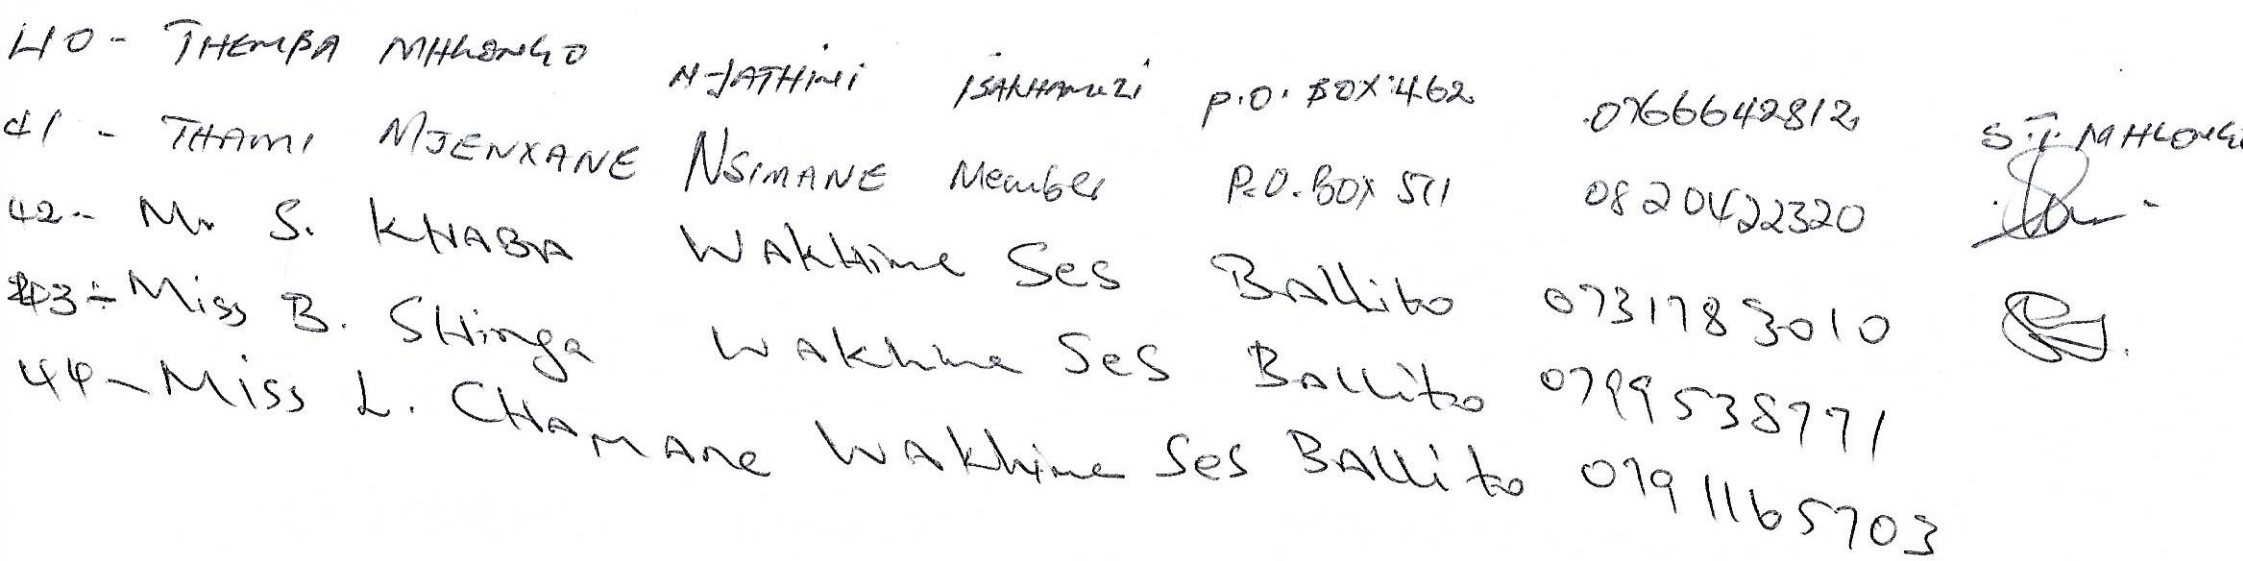 40 - THEMBA MHLONGO NJATHINI ISAKHAMUZI P.O. BOX 462 0766642812 S.T. MHLONGO
41 - THAMI MJENXANE NSIMANE Member P.O. BOX 511 0820422320
42 - Mr S. KHABA WAKHime Ses BALLito 0731783010
43 - Miss B. SHinga WAKhime Ses BALLito 0799538771
44 - Miss L. CHAMANe WAKhime Ses BALLito 0791165703